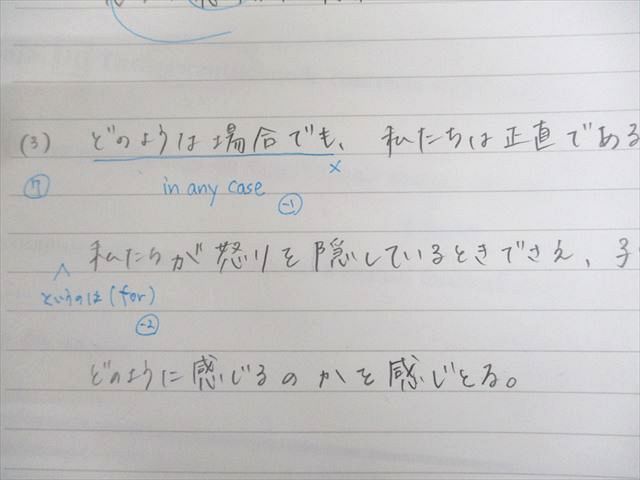 (3) どのような場合でも、 私たちは正直である
⑦ in any case ×
-1
私たちが怒りを隠しているときでさえ、子
というのは (for)
-2
どのように感じるのかを感じとる。